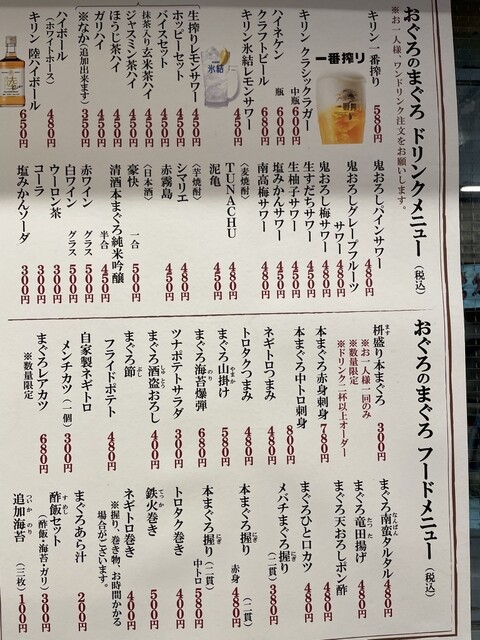 おぐろのまぐろ ドリンクメニュー（税込）
※お一人様、ワンドリンク注文をお願いします。
キリン 一番搾り 580円
一番搾り
キリン クラシックラガー 中瓶 600円
ハイネケン 瓶 600円
クラフトビール 680円
キリン氷結レモンサワー 450円
氷結
生搾りレモンサワー 480円
ホッピーセット 450円
バイスセット 450円
抹茶入り玄米茶ハイ 450円
ジャスミン茶ハイ 450円
ほうじ茶ハイ 450円
ガリハイ 450円
（※なか）追加出来ます 350円
ハイボール（ホワイトホース） 480円
キリン 陸ハイボール 650円
鬼おろしパインサワー 480円
鬼おろしグレープフルーツサワー 480円
鬼おろし梅サワー 480円
生すだちサワー 450円
生柚子サワー 450円
塩みかんサワー 450円
南高梅サワー 450円
〈麦焼酎〉
TUNACHU 480円
泥亀 480円
〈芋焼酎〉
シマリエ 480円
赤霧島 450円
〈日本酒〉
豪快 一合 500円
清酒本まぐろ純米吟醸 半合 450円
赤ワイン グラス 500円
白ワイン グラス 500円
ウーロン茶 300円
コーラ 300円
塩みかんソーダ 300円
おぐろのまぐろ フードメニュー（税込）
枡盛り本まぐろ 300円
※お一人様一回のみ
※数量限定
※ドリンク二杯以上オーダー
本まぐろ赤身刺身 780円
本まぐろ中トロ刺身 800円
ネギトロつまみ 480円
トロタクつまみ 480円
まぐろ山掛け 580円
まぐろ海苔爆弾 680円
ツナポテトサラダ 300円
まぐろ酒盗おろし 400円
まぐろ節
フライドポテト 480円
自家製ネギトロ
メンチカツ（一個） 300円
まぐろレアカツ 680円
※数量限定
まぐろ南蛮タルタル 480円
まぐろ竜田揚げ 480円
まぐろ天おろしポン酢 480円
まぐろひと口カツ 480円
メバチまぐろ握り（二貫） 380円
本まぐろ握り 赤身（二貫） 480円
本まぐろ握り（二貫） 中トロ 580円
トロタク巻き 400円
鉄火巻き 500円
ネギトロ巻き 400円
※握り、巻き物、お時間かかる場合がございます。
まぐろあら汁 200円
酢飯セット（酢飯・海苔・ガリ） 300円
追加海苔（三枚） 100円